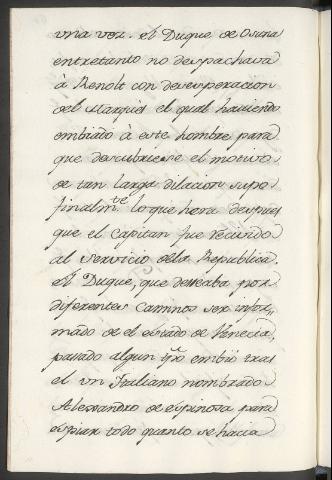 vna vez. el Duque de Osuna
entretanto no despachava
à Renolt con desesperacion
del Marquès el qual haviendo
embiado à este hombre para
que descubriese el motivo
de tan larga dilacion supo
finalm.te lo que hera despues
que el capitan fue recivido
al servicio dela Republica.
el Duque, que deseaba por
diferentes caminos ser infor,,
mado de el estado de Venecia,
pasado algun tpo embiò tras
el vn Italiano nombrado
Alessandro de espinosa para
espiar todo quanto se hacia